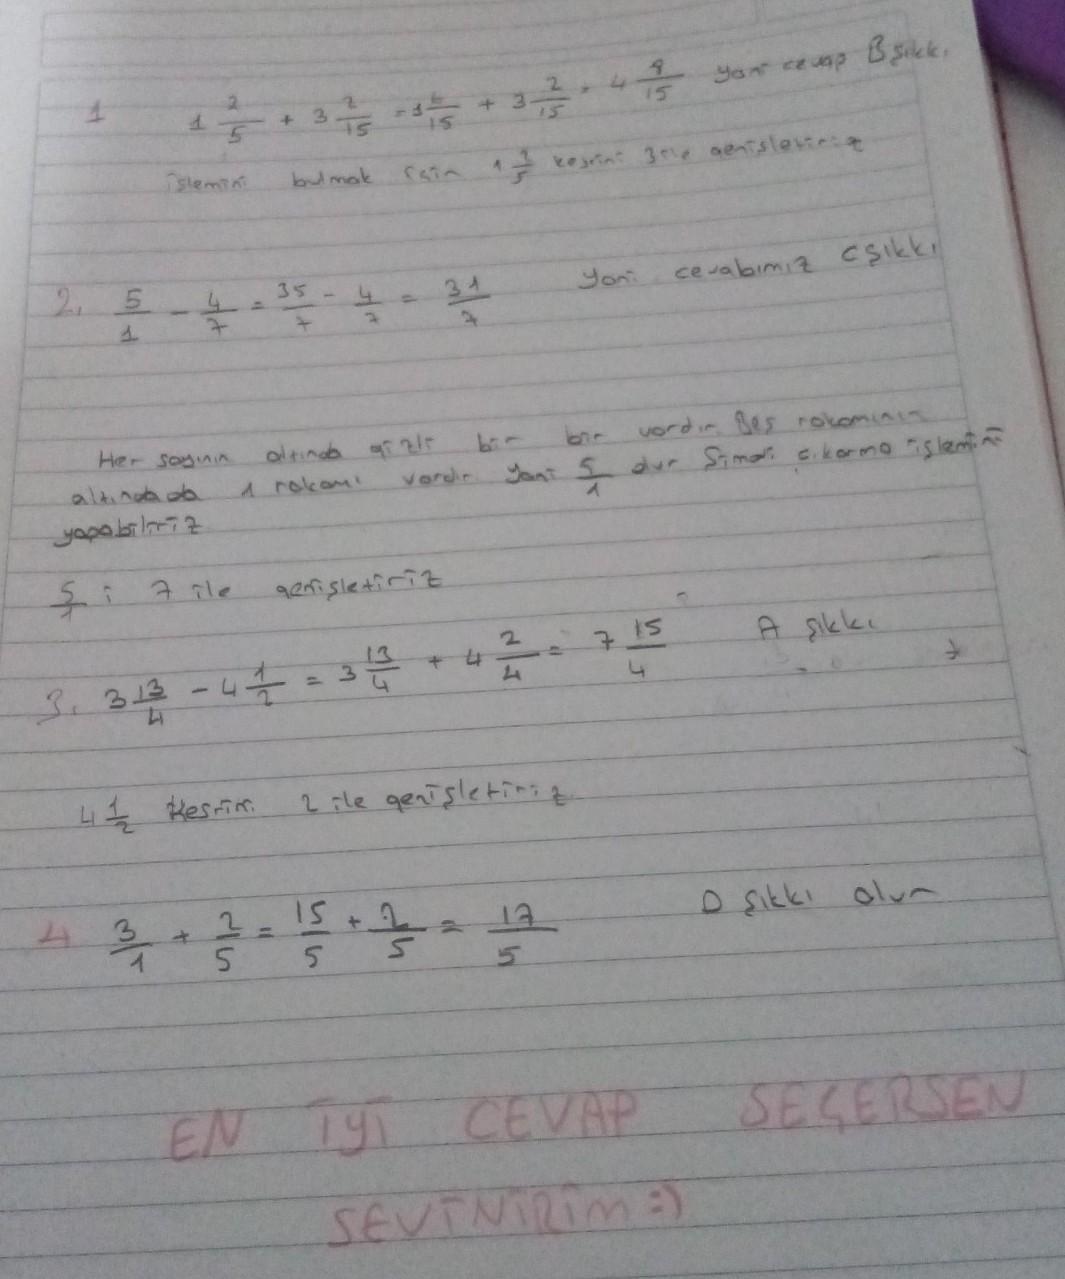 1 1 2/5 + 3 2/15 = 1 6/15 + 3 2/15 = 4 8/15 yani cevap B şıkkı
işlemini bulmak için 1 2/5 kesrini 3 ile genişletiriz
2. 5/1 - 4/7 = 35/7 - 4/7 = 31/7 yani cevabımız C şıkkı
Her sayının altında gizli bir bir vardır. Beş rakamının
altındada 1 rakamı vardır yani 5/1 dur Şimdi çıkarma işlemini
yapabiliriz
5/1 i 7 ile genişletiriz
3. 3 13/4 - 4 1/2 = 3 13/4 + 4 2/4 = 7 15/4 A şıkkı
4 1/2 kesrini 2 ile genişletiriz
4 3/1 + 2/5 = 15/5 + 2/5 = 17/5 D şıkkı olur
EN İYİ CEVAP SEÇERSEN
SEVİNİRİM :)